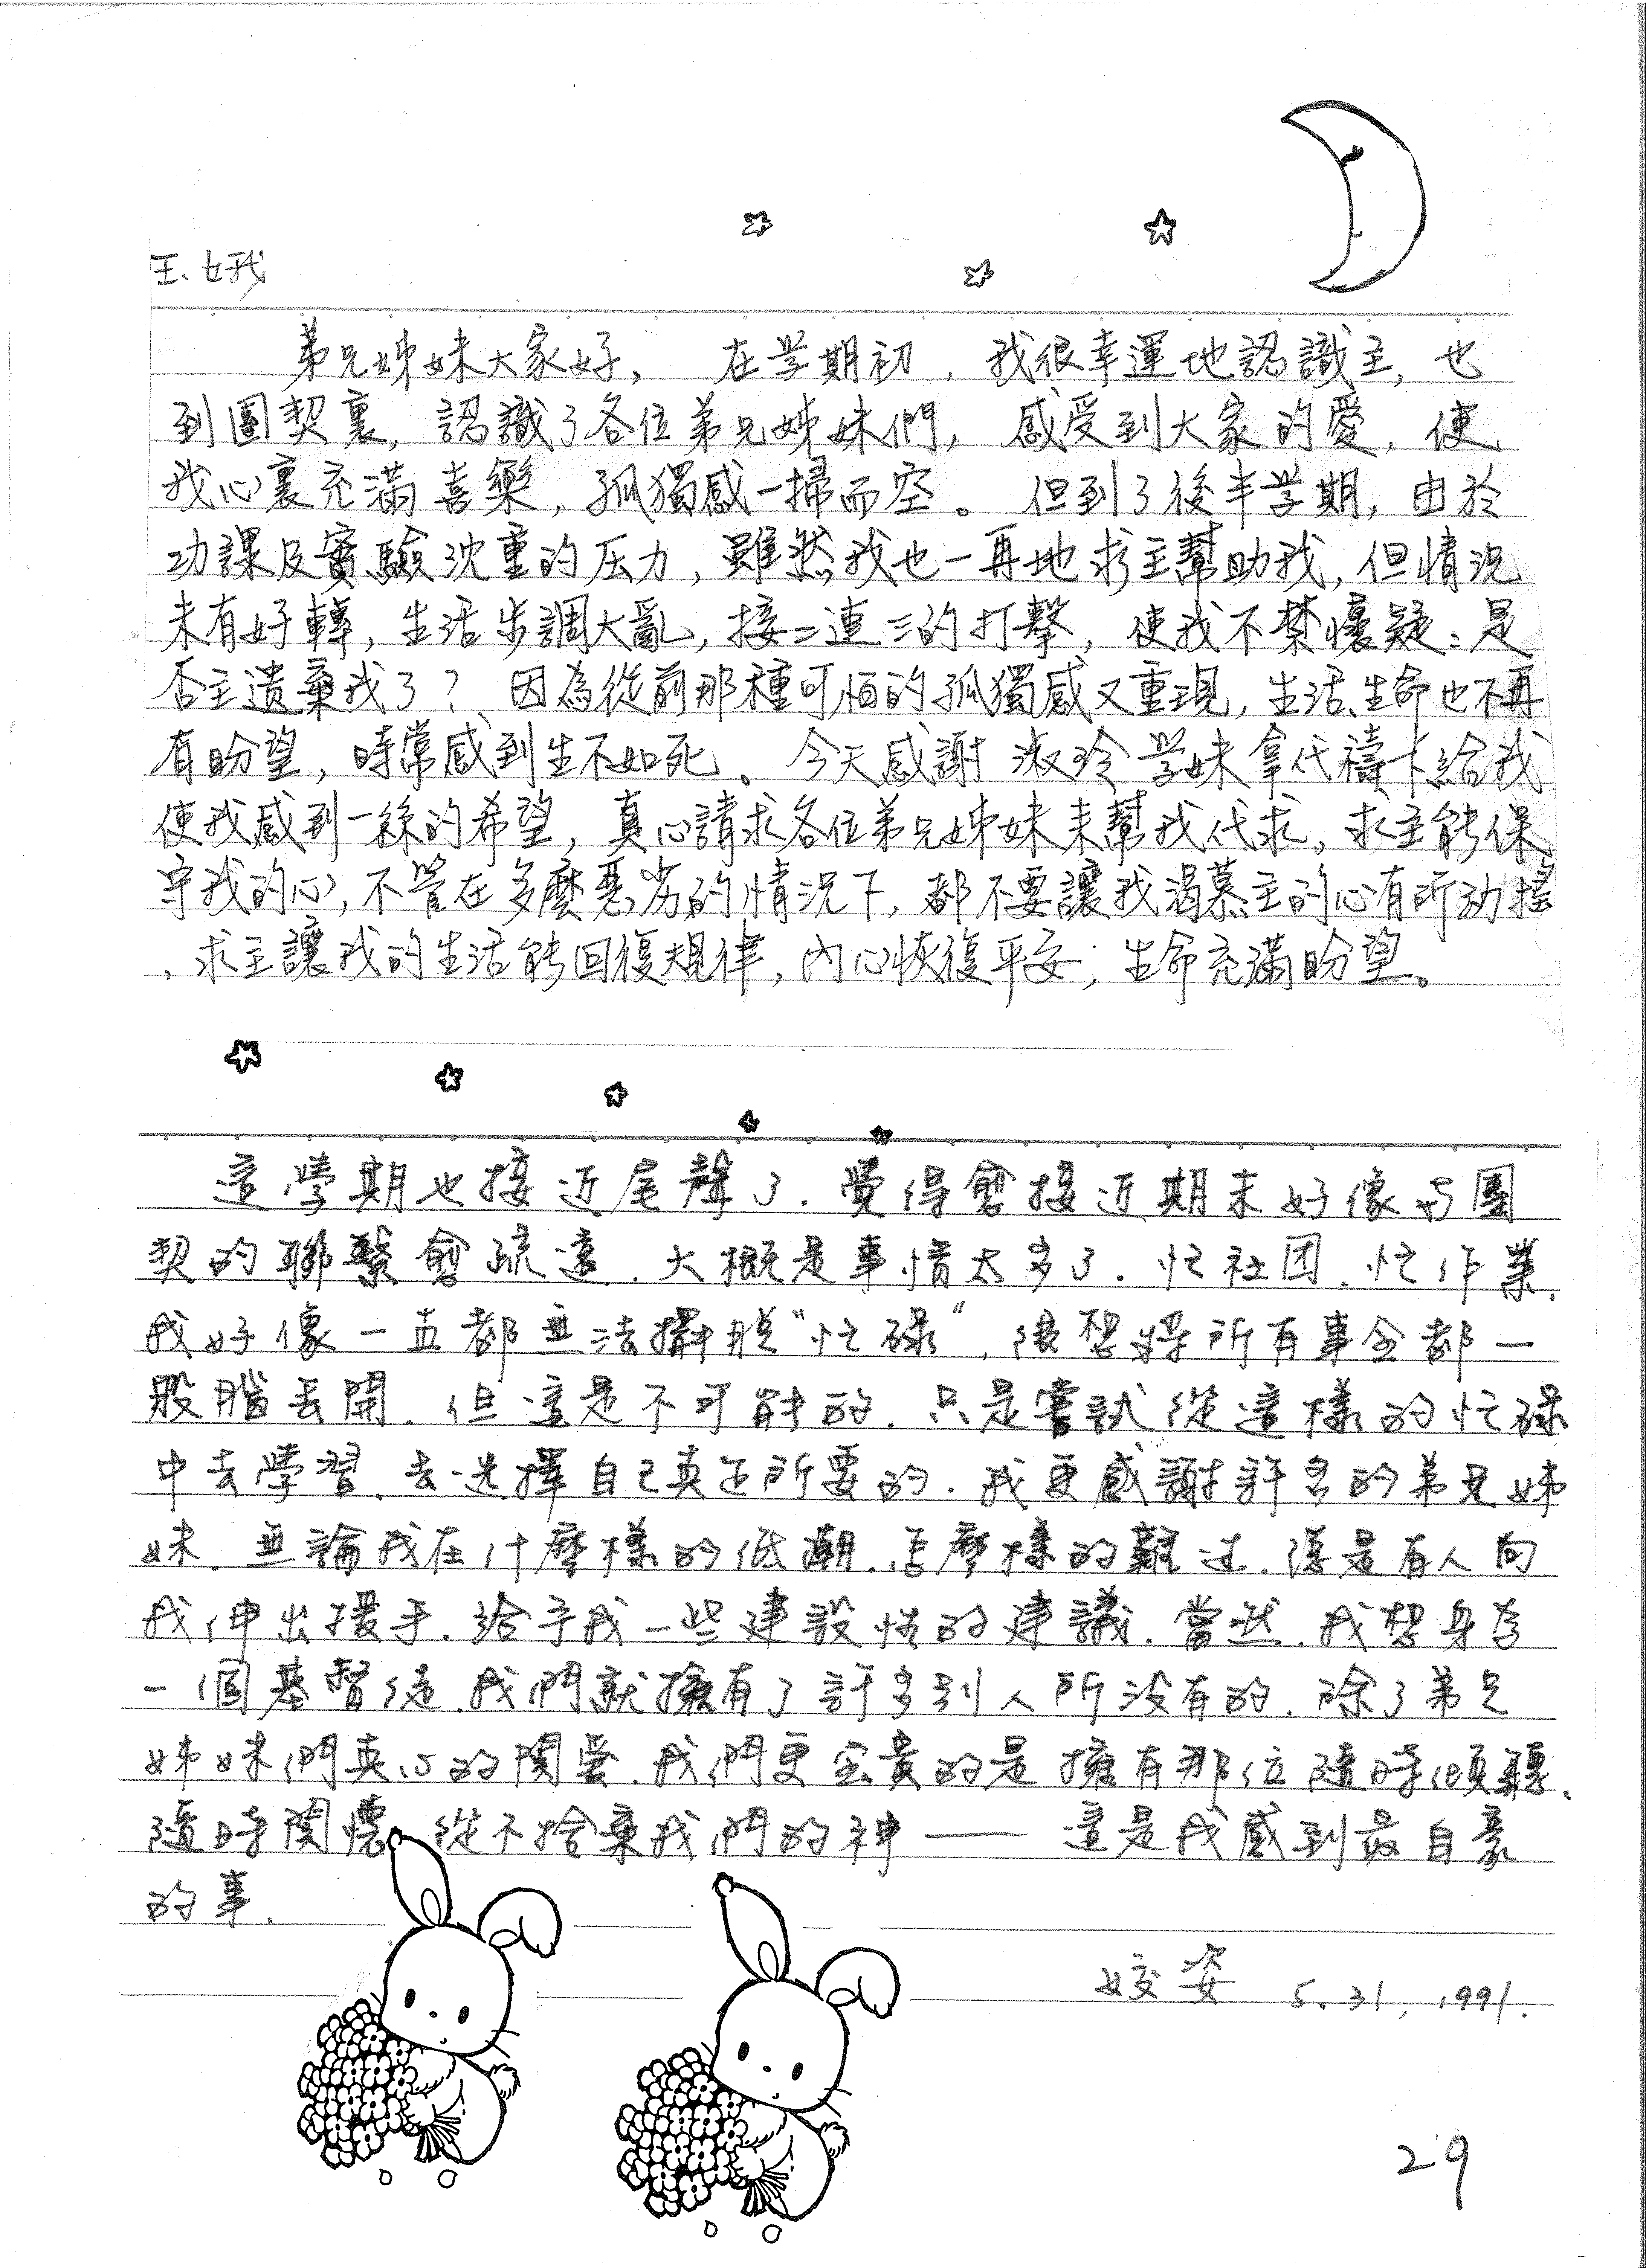 王、娥
弟兄姊妹大家好，在学期初，我很幸運地認識主，也
到團契裏，認識了各位弟兄姊妹們，感受到大家的愛，使
我心裏充滿喜樂，孤獨感一掃而空。但到了後半学期，由於
功課及實驗沈重的压力，雖然我也一再地求主幫助我，但情況
未有好轉，生活步調大亂，接二連三的打擊，使我不禁懷疑：是
否主遺棄我了？因為從前那種可怕的孤獨感又重現，生活、生命也不再
有盼望，時常感到生不如死。今天感謝淑玲学妹拿代禱卡給我
使我感到一絲的希望，真心請求各位弟兄姊妹來幫我代求，求主能保
守我的心，不管在多麼惡劣的情況下，都不要讓我渴慕主的心有所動搖
，求主讓我的生活能回復規律，內心恢復平安；生命充滿盼望。
這學期也接近尾聲了．覺得愈接近期末好像与團
契的聯繫愈疏遠．大概是事情太多了．忙社团、忙作業．
我好像一直都無法擺脫“忙碌”，很想將所有事全都一
股腦丟開．但這是不可能的．只是嘗試從這樣的忙碌
中去學習、去选擇自己真正所要的．我更感謝許多的弟兄姊
妹．無論我在什麼樣的低潮．怎麼樣的難过．總是有人向
我伸出援手．給予我一些建設性的建議．當然．我想身為
一個基督徒．我們就擁有了許多別人所沒有的．除了弟兄
姊妹們真心的関愛．我們更宝貴的是擁有那位隨時傾聽、
隨時関懷、從不捨棄我們的神——這是我感到最自豪
的事．
姣姿 5.31,1991.
29